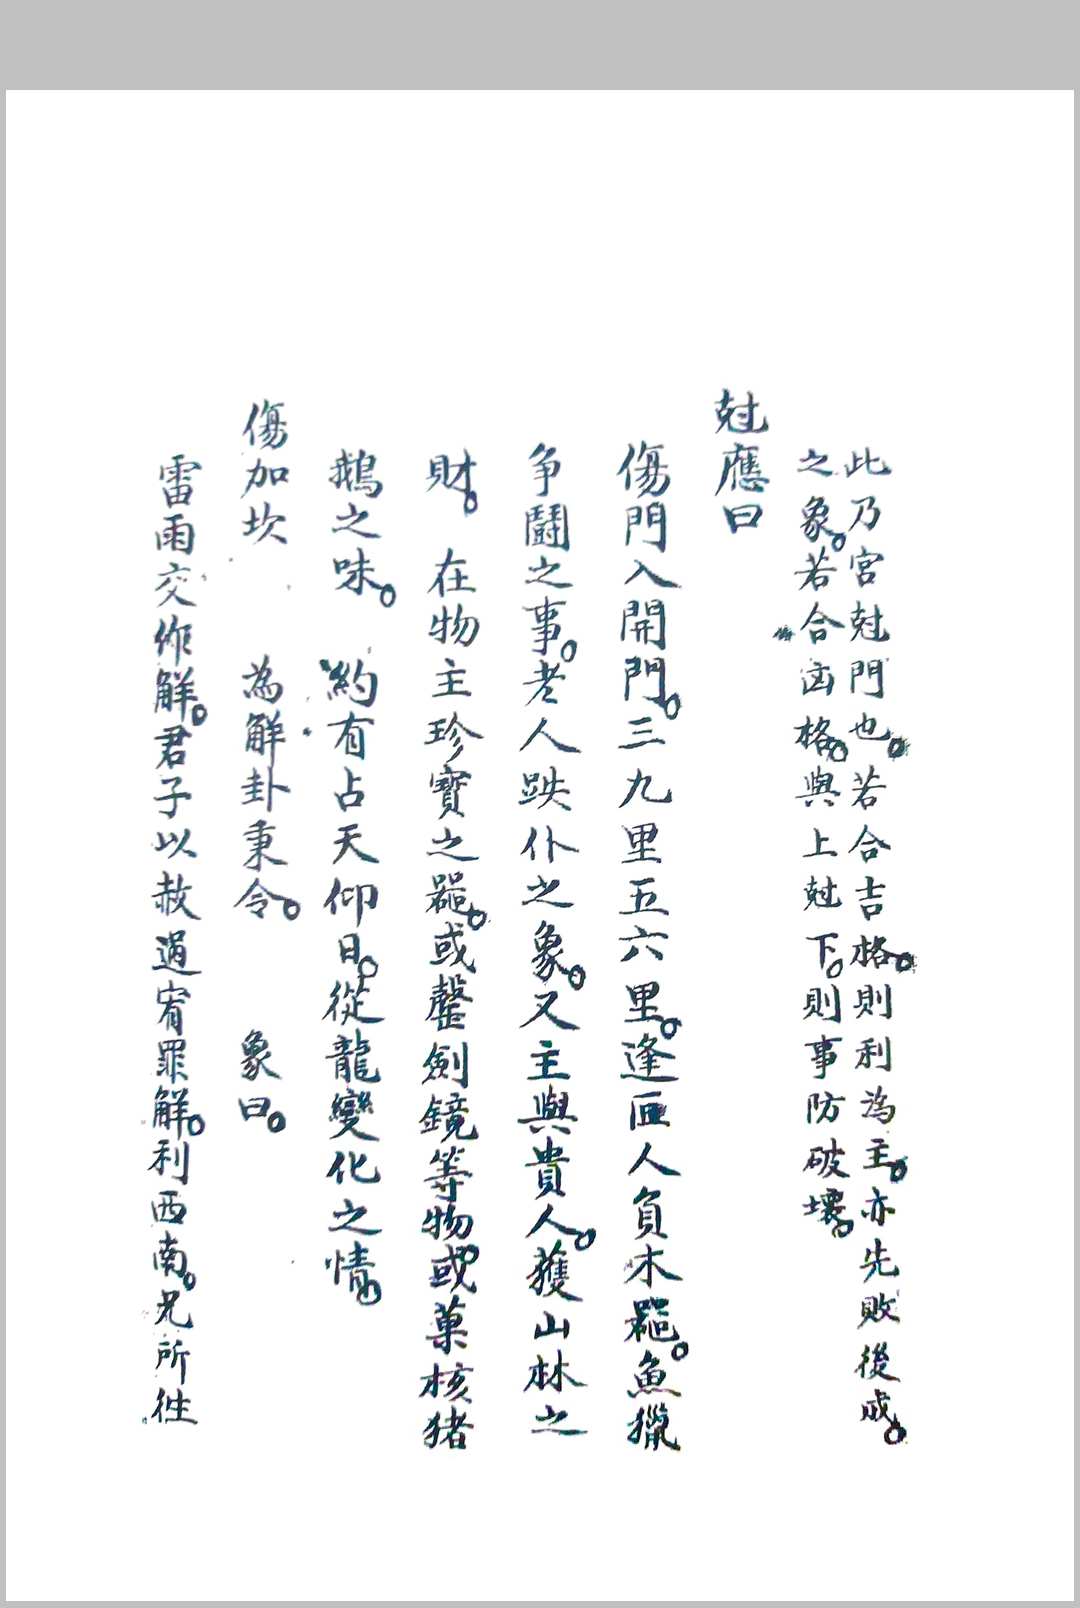 此乃宮尅門也。若合吉格。則利為主。亦先敗後成。
之象。若合凶格。與上尅下。則事防破壞。
尅應曰
傷門入開門。三九里五六里。逢匠人負木器。魚獵
争鬪之事。老人跌仆之象。又主與貴人。獲山林之
財。 在物主珍寶之器。或罄劍鏡等物。或菓核猪
鵝之味。 約有占天仰日。從龍變化之情。
傷加坎 為解卦秉令。 象曰。
雷雨交作解。君子以赦過宥罪解。利西南。兄所往